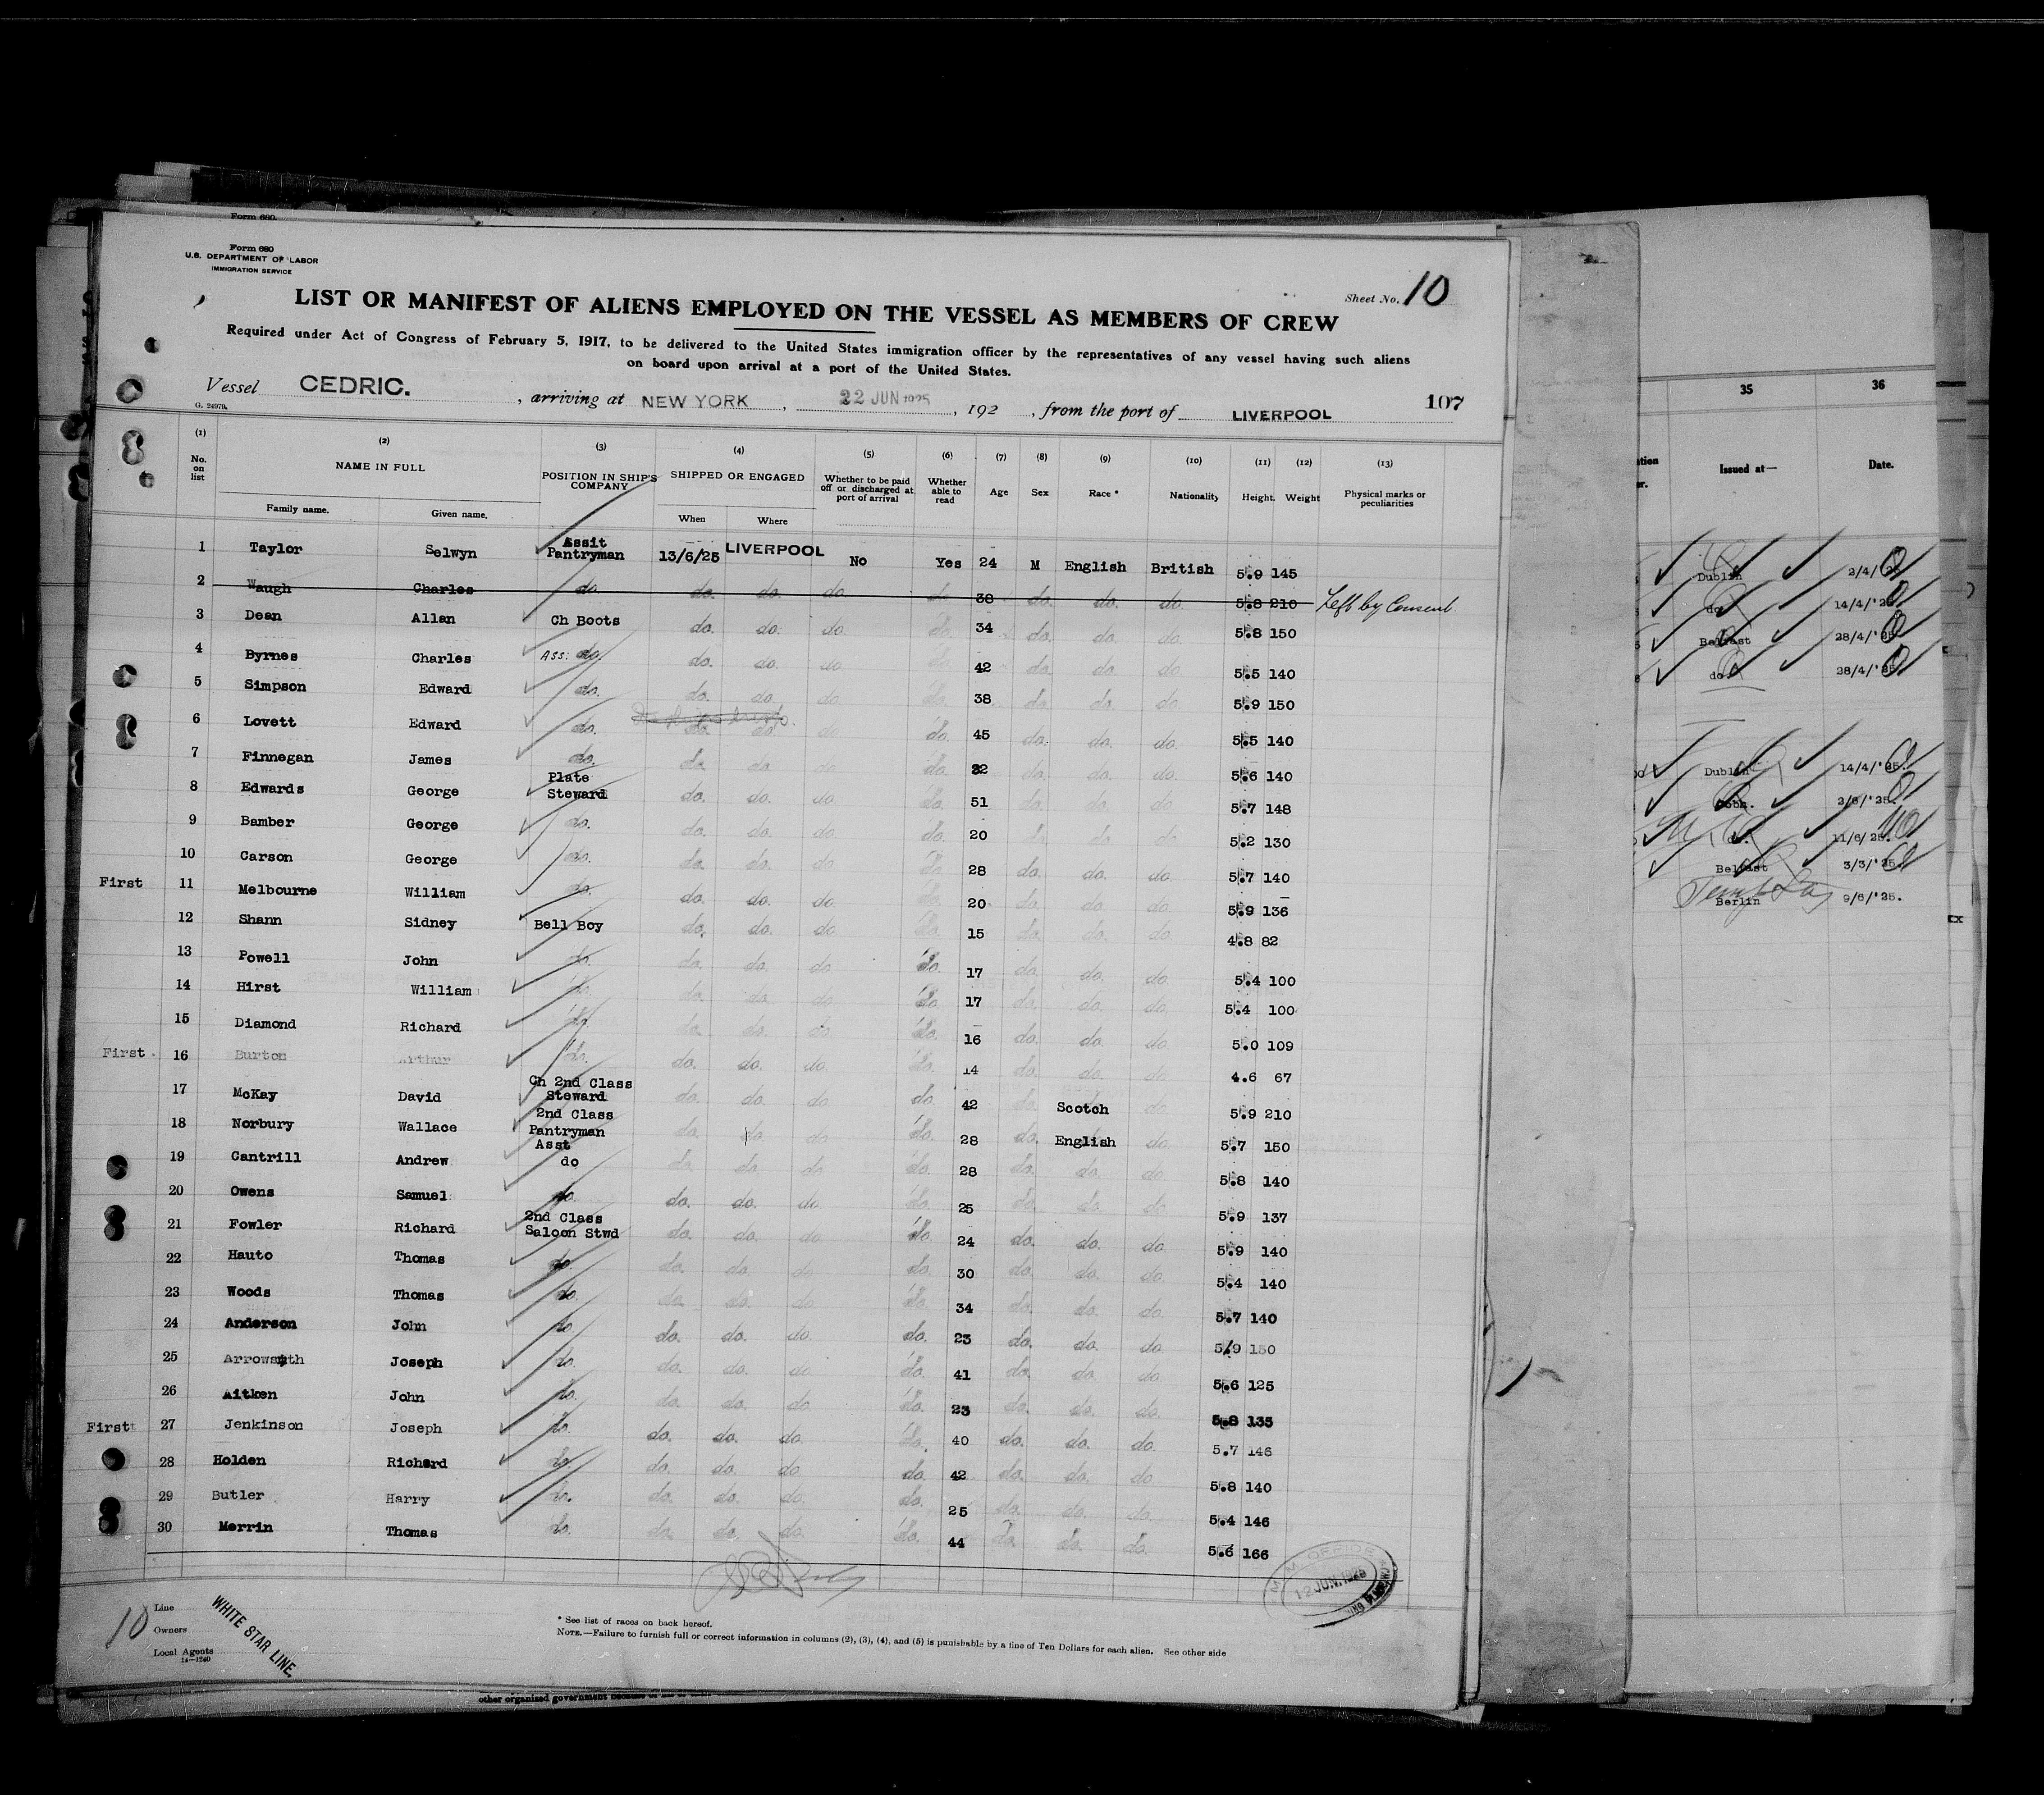 Form 680
Form 680
U.S. DEPARTMENT OF LABOR
IMMIGRATION SERVICE
Sheet No. 10
LIST OR MANIFEST OF ALIENS EMPLOYED ON THE VESSEL AS MEMBERS OF CREW
Required under Act of Congress of February 5, 1917, to be delivered to the United States immigration officer by the representatives of any vessel having such aliens
on board upon arrival at a port of the United States.
Vessel CEDRIC. , arriving at NEW YORK , 22 JUN 1925 , 192 , from the port of LIVERPOOL 107
G. 24979.
(1) (2) (3) (4) (5) (6) (7) (8) (9) (10) (11) (12) (13)
No. on list NAME IN FULL Family name. Given name. POSITION IN SHIP'S COMPANY SHIPPED OR ENGAGED When Where Whether to be paid off or discharged at port of arrival Whether able to read Age Sex Race * Nationality Height. Weight Physical marks or peculiarities
1 Taylor Selwyn Assit Pantryman 13/6/25 LIVERPOOL No Yes 24 M English British 5.9 145
2 Waugh Charles do do. do. do do. 38 do. do. do. 5.8 210 Left by Consent
3 Dean Allan Ch Boots do. do. do do. 34 do. do. do. 5.8 150
4 Byrnes Charles Ass: do. do. do. do do. 42 do. do. do. 5.5 140
5 Simpson Edward do. do. do. do do. 38 do. do. do. 5.9 150
6 Lovett Edward do. do. do. do do. 45 do. do. do. 5.5 140
7 Finnegan James do. do. do. do do. 32 do. do. do. 5.6 140
8 Edwards George Plate Steward do. do. do do. 51 do. do. do. 5.7 148
9 Bamber George do. do. do. do do. 20 do. do. do 5.2 130
10 Carson George do. do. do. do do. 28 do. do. do. 5.7 140
First 11 Melbourne William do. do. do. do do. 20 do. do. do. 5.9 136
12 Shann Sidney Bell Boy do. do. do do. 15 do. do. do. 4.8 82
13 Powell John do. do. do. do do. 17 do. do. do. 5.4 100
14 Hirst William do. do. do. do do. 17 do. do. do. 5.4 100
15 Diamond Richard do. do. do. do. do. 16 do. do. do. 5.0 109
First 16 Burton Arthur do. do. do. do. do. 14 do. do. do. 4.6 67
17 McKay David Ch 2nd Class Steward do. do. do do. 42 do. Scotch do. 5.9 210
18 Norbury Wallace 2nd Class Pantryman do. do. do do. 28 do. English do. 5.7 150
19 Cantrill Andrew Asst do do. do. do do. 28 do. do. do. 5.8 140
20 Owens Samuel do. do. do. do do. 25 do. do. do 5.9 137
21 Fowler Richard 2nd Class Saloon Stwd do. do. do do. 24 do. do. do. 5.9 140
22 Hauto Thomas do. do. do. do do. 30 do. do. do. 5.4 140
23 Woods Thomas do. do. do. do do. 34 do. do. do. 5.7 140
24 Anderson John do. do. do. do. do. 23 do. do. do 5.9 150
25 Arrowsmith Joseph do. do. do. do do. 41 do. do. do. 5.6 125
26 Aitken John do. do. do. do. do. 23 do. do. do. 5.8 135
First 27 Jenkinson Joseph do. do. do. do. do. 40 do. do. do. 5.7 146
28 Holden Richard do. do. do. do do. 42 do. do. do 5.8 140
29 Butler Harry do. do. do. do. do. 25 do. do. do. 5.4 146
30 Merrin Thomas do. do. do. do. do. 44 do. do. do. 5.6 166
M.M. OFFICE
12 JUN. 1925
10
Line
Owners
Local Agents
14—1240
WHITE STAR LINE.
* See list of races on back hereof.
NOTE.—Failure to furnish full or correct information in columns (2), (3), (4), and (5) is punishable by a fine of Ten Dollars for each alien. See other side
other organized government
35 36
Issued at— Date.
Dublin 2/4/
do 14/4/'25
Belfast 28/4/'25
do. 28/4/'25
Dublin 14/4/'25.
Cobh. 2/6/'25.
do. 11/6/25.
Belfast 3/3/'25
Berlin 9/6/'25.